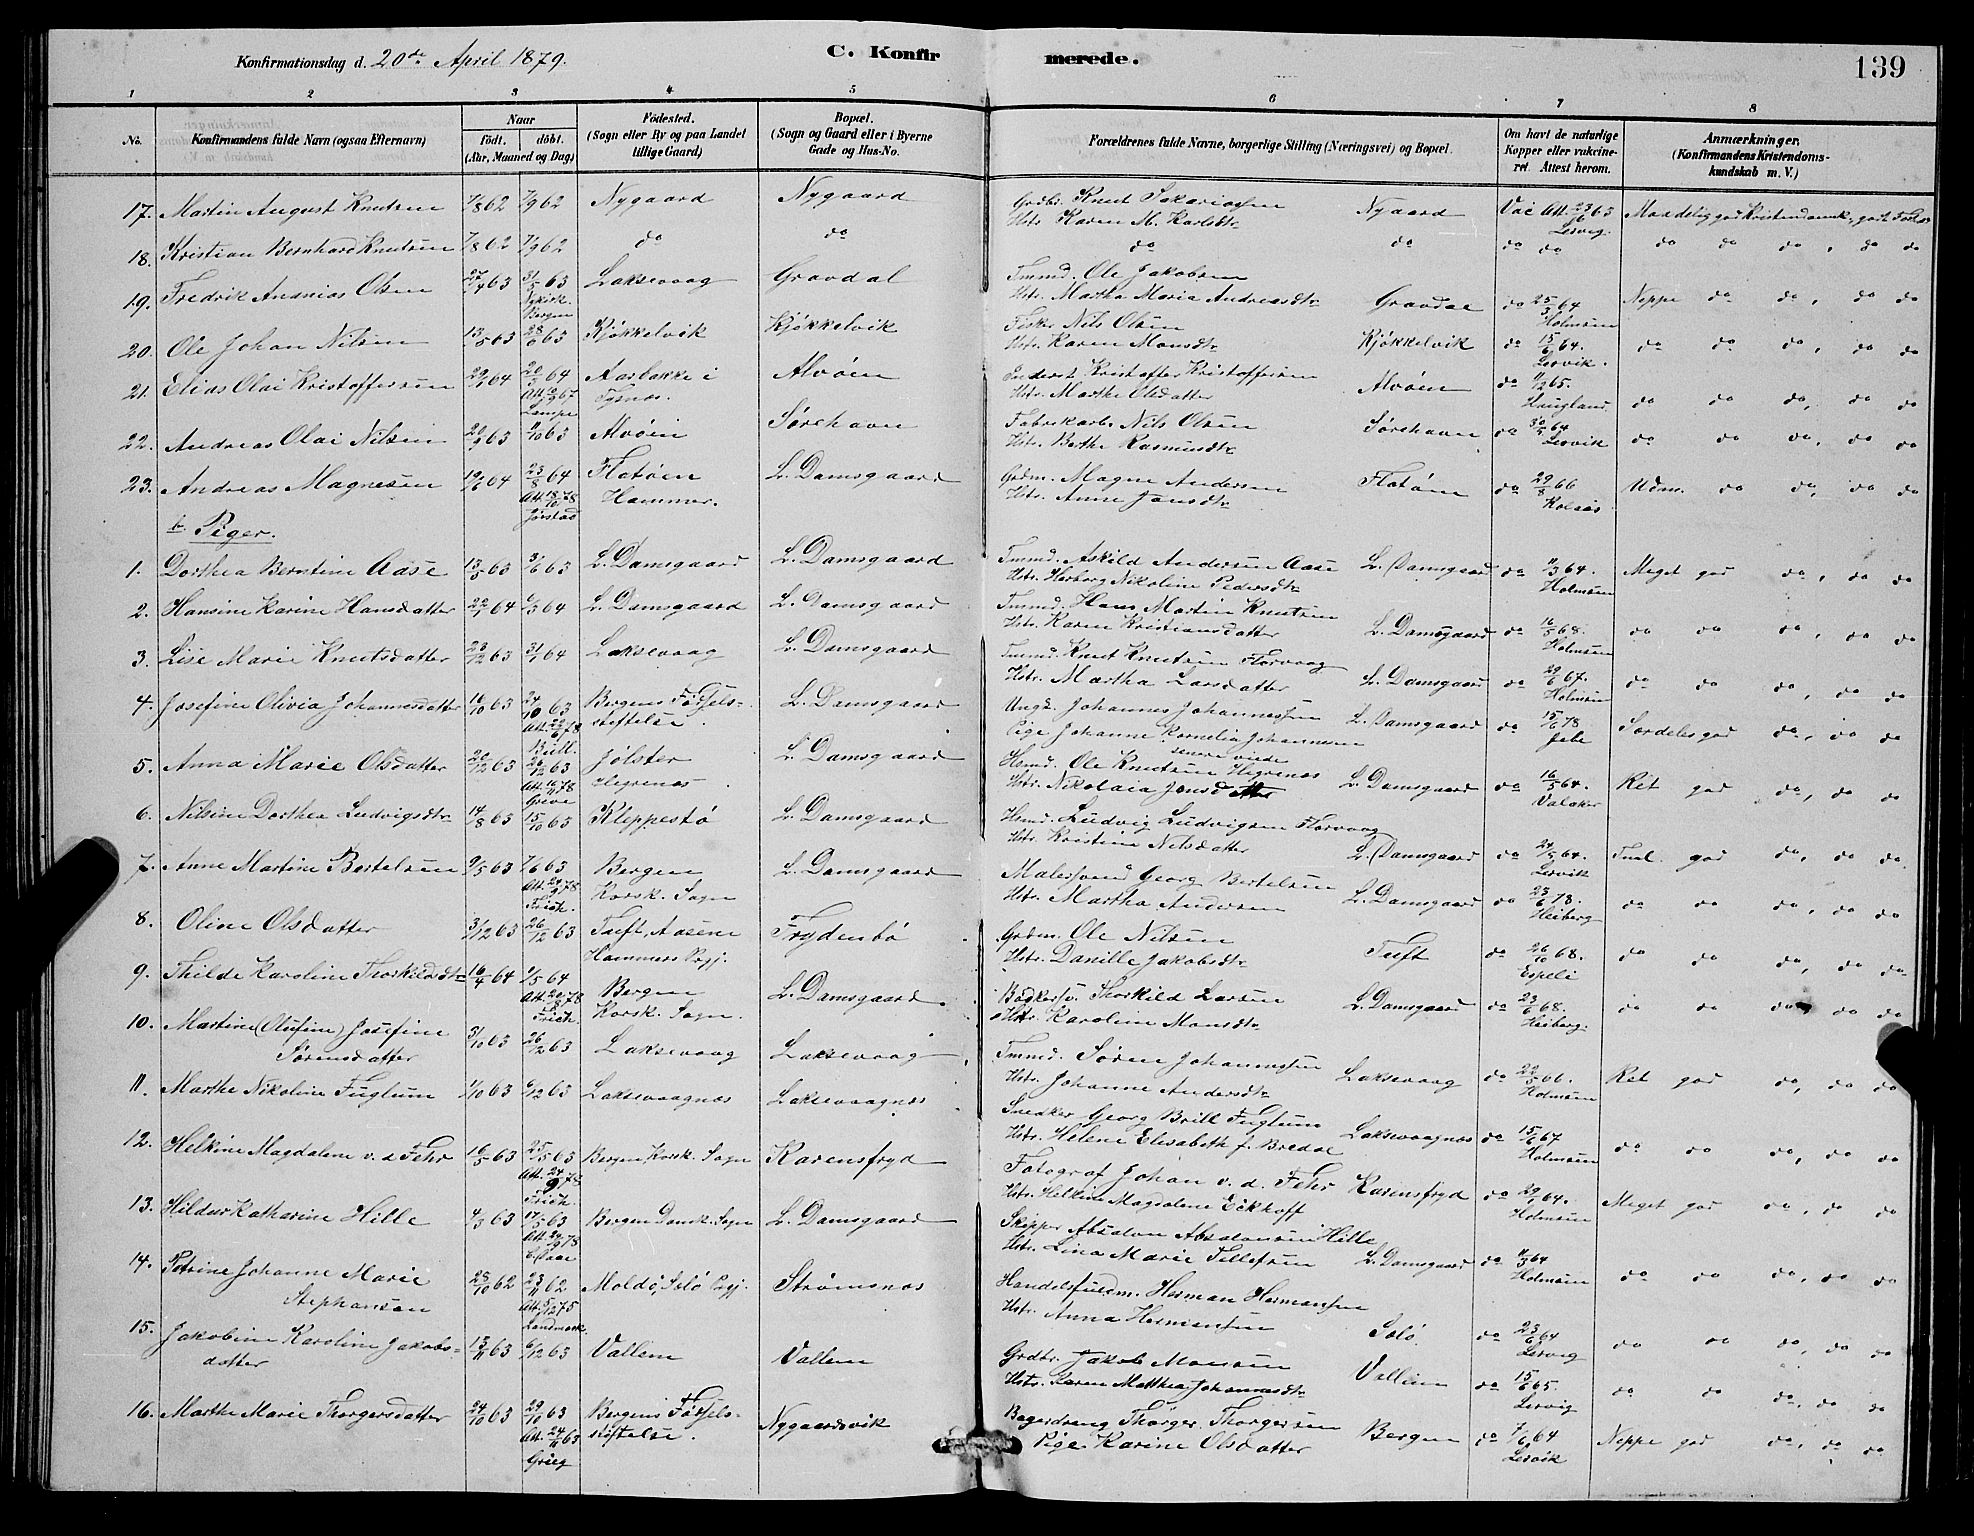 Konfirmationsdag d. 20de April 1879.
C. Konfirmerede.
139
1 2 3 4 5 6 7 8
No.
Konfirmandens fulde Navn (ogsaa Efternavn)
Naar
födt. döbt.
(Aar, Maaned og Dag)
Födested.
(Sogn eller By og paa Landet tillige Gaard)
Bopæl.
(Sogn og Gaard eller i Byerne Gade og Hus-No.
Forældrenes fulde Navne, borgerlige Stilling (Næringsvei) og Bopæl.
Om havt de naturlige Kopper eller vakcineret. Attest herom.
Anmærkninger.
(Konfirmandens Kristendomskundskab m. V.)
17. Martin August Knutsen 7/8 62 7/9 62 Nygaard Nygaard
Grdbr. Knut Sakariassen
Hstr. Karen M. Karlsdtr Nygaard Vac. Att. 23/6 63 Lervig
18. Kristian Bernhard Knutsen 7/8 62 7/9 62 do do do do do do do do do, do do
19. Fredrik Ananias Olsen 27/4 63 31/5 63 Nykirk. Bergen Laksevaag Gravdal
Tmmd. Ole Jakobsen
Hstr. Martha Maria Andreasdtr Gravdal do 25/3 64 Holmsen Neppe do do, do do
20. Ole Johan Nilsen 13/5 63 Kjøkkelvik Kjøkkelvik
Fisker Nils Olsen
Hstr. Karen Monsdtr Kjøkkelvik do 15/6 64. Lervik. do do do, do do
21. Elias Olai Kristoffersen Aarbakke i Tysnæs. Alvøen
Inderst Kristoffer Kristoffersen
Hstr. Marthe Olsdatter Alvøen do Haugland do do do, do do
22. Andreas Olai Nilsen 20/9 63 11/10 63 Alvøen Sørehavn
Fabrikarb. Nils Olsen
Hstr. Berthe Rasmusdtr Sørehavn do Lervik do do do, do do
23. Andreas Magnesen 19/6 64 23/8 64 Att. 18/10 78 Jørstad Flatøen Hammer. L. Damsgaard
Grdm. Magne Andersen
Hstr. Anne Jonsdtr Flatøen do 29/8 66 Kolaas Udm. do do, do do
b. Piger.
1. Dorthea Berntine Aase 13/5 63 3/6 63 L. Damsgaard L. Damsgaard
Tmmd. Askild Andersen Aase
Hstr. Herborg Nikoline Pedersdtr L. Damsgaard do 11/3 64. Holmsen Meget god do, do do
2. Hansine Karine Hansdatter 22/1 64 6/3 64 L. Damsgaard L. Damsgaard
Tmmd. Hans Martin Knutsen
Hstr. Karen Kristiansdatter L. Damsgaard do 16/5 68. Holmsen do do do, do do
3. Lise Marie Knutsdatter 23/12 63 31/1 64 Laksevaag L. Damsgaard
Tmmd. Knut Knutsen Florvaag
Hstr. Martha Larsdatter L. Damsgaard do 29/6 67. Holmsen do do do, do do
4. Josefine Olivia Johannesdatter 16/10 63 24/10 63 Att. 22/6 78 Bull. Bergens Fødselsstiftelse. L. Damsgaard
Ungk. Johannes Johannessen
Pige Johanne Kornelia Johannesen
senere viede L. Damsgaard do 15/6 78 Særdeles god do, do do
5. Anna Marie Olsdatter 20/12 63 26/12 63 Att. 16/11 78 Greve Jølster Hegrenæs. L. Damsgaard
Hsmd. Ole Knutsen Hegrenæs
Hstr. Nikolaia Jonsdatter L. Damsgaard do 16/5 64. Valaker Ret god do, do do
6. Nilsine Dorthea Ludvigsdtr 14/8 63 15/10 63 Kleppestø L. Damsgaard
Hsmd. Ludvig Ludvigsen Florvaag
Hstr. Kristine Nilsdatter L. Damsgaard do 24/5 64. Lervik Tml. god do, do do.
7. Anne Martine Bertelsen 9/5 63 7/6 63 Att. 24/9 78 Frich. Bergen Korsk. Sogn L. Damsgaard
Malersvend Georg Bertelsen
Hstr. Martha Andersen L. Damsgaard do 23/6 78. Heiberg do do do, do do
8. Oline Olsdatter 3/12 63 26/12 63 Tuft, Aasene Hammers Prgj. Frydenbø
Grdm. Ole Nilsen
Hstr. Danille Jakobsdtr Tuft do 26/10 68. Espeli do do do, do do
9. Thilde Karoline Thorkildsdtr 16/4 64 Att. 20/8 78 Frich. Bergen Korsk. Sogn. L. Damsgaard
Bødkersv. Thorkild Larsen
Hstr. Karoline Monsdtr L. Damsgaard do 23/6 68. Heiberg. do do do do do
10. Martine (Olufine) Josefine Sørensdatter 3/10 63 26/12 63 Laksevaag Laksevaag
Tmmd. Søren Johannessen
Hstr. Johanne Andersdtr Laksevaag do 22/5 66. Holmsen Ret god do, do do
11. Marthe Nikoline Fuglum 1/10 63 6/12 63 Laksevaagnæs Laksevaagnæs
Snedker Georg Brill Fuglum
Hstr. Helene Elisabeth f. Bredal Laksevaagnæs do 15/6 67 Holmsen do do do, do do
12. Helkine Magdalene v. d. Fehr 16/5 63 25/5 63 Att. 24/9 78 Frich Bergen Korsk. Sogn Karensfryd
Fotograf Johan v. d. Fehr
Hstr. Helkine Magdalene Eckhoff Karensfryd do 29/1 64. Holmsen Meget god do, do do
13. Hildur Katharine Hille 4/3 63 17/5 63 Att. 24/9 78 Bergen Domk. Sogn L. Damsgaard
Skipper Absalon Absalonsen Hille
Hstr. Lina Marie Tellefsen L. Damsgaard do 11/3 64 Holmsen do do do, do do
14. Petrine Johanne Marie Stephansen 28/10 62 23/11 62 Att. 5/12 75 Landmark. Moldø, Selø Prgj. Strømsnæs
Handelsfuldm. Herman Hermansen
Hstr. Anna Hermansen Selø do 23/6 64 Lervig do do do, do do
15. Jakobine Karoline Jakobsdatter 13/11 63 6/12 63 Vallem Vallem
Grdbr. Jakob Monsen
Hstr. Karen Matthea Johannesdtr Vallem do 15/6 65. Lervig do do do, do do
16. Marthe Marie Thorgersdatter 24/10 63 29/10 63 Att. Grieg Bergens Fødselsstiftelse. Nygaardsvik
Bagerdreng Thorger Thorgersen
Pige Karine Olsdatter Bergen do 7/6 64 Lervik Neppe god do, do do